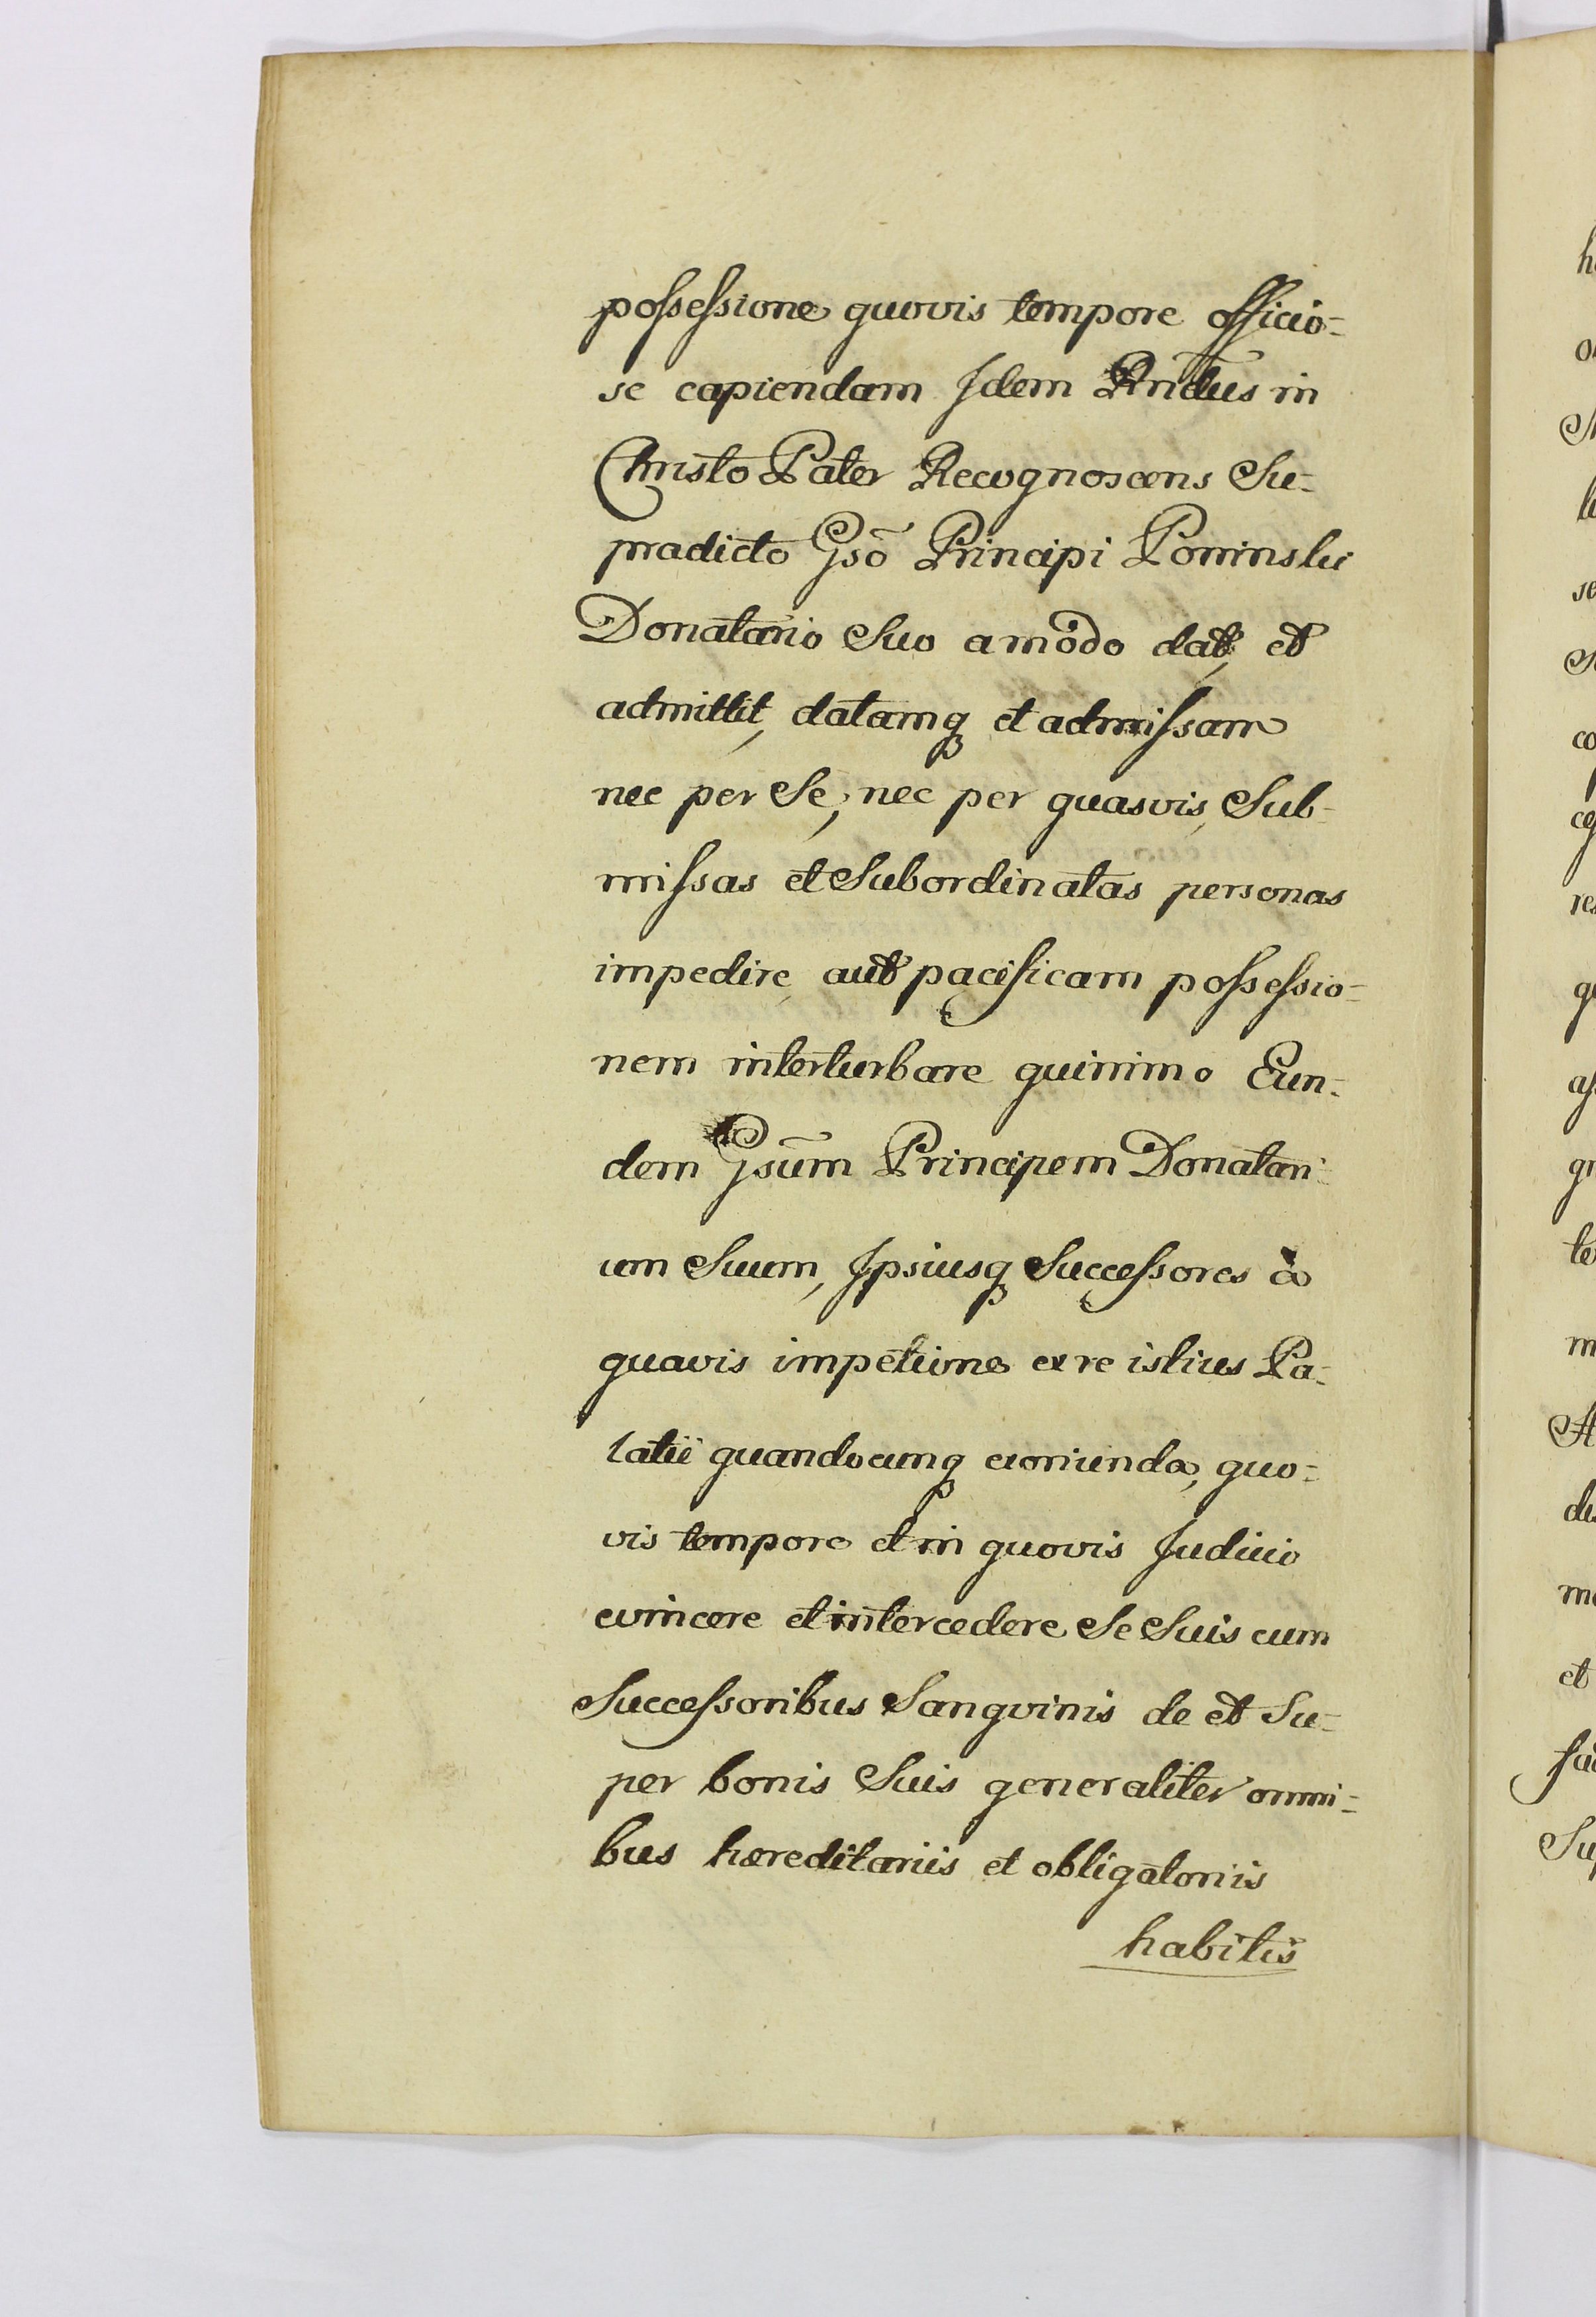 possessione quovis tempore officio=
se capiendam Idem Rndus in
Christo Pater Recognoscens Su=
pradicto Gso Principi Poninski
Donatario Suo amodo dat, et
admittit, datamq et admissam
nec per Se, nec per quasvis Sub-
missas et Subordinatas personas
impedire aut pacificam possessio=
nem interturbare quinimo Eun=
dem Gsum Principem Donatari
um Suum, Ipsiusq Successores à
quavis impetitione ex re istius Pa=
latii quandocunq exoriunda, quo=
vis tempore et in quovis Judicio
evincere et intercedere Se Suis cum
Successoribus Sangvinis de et Su=
per bonis Suis generaliter omni=
bus haereditariis et obligatoriis
habitis